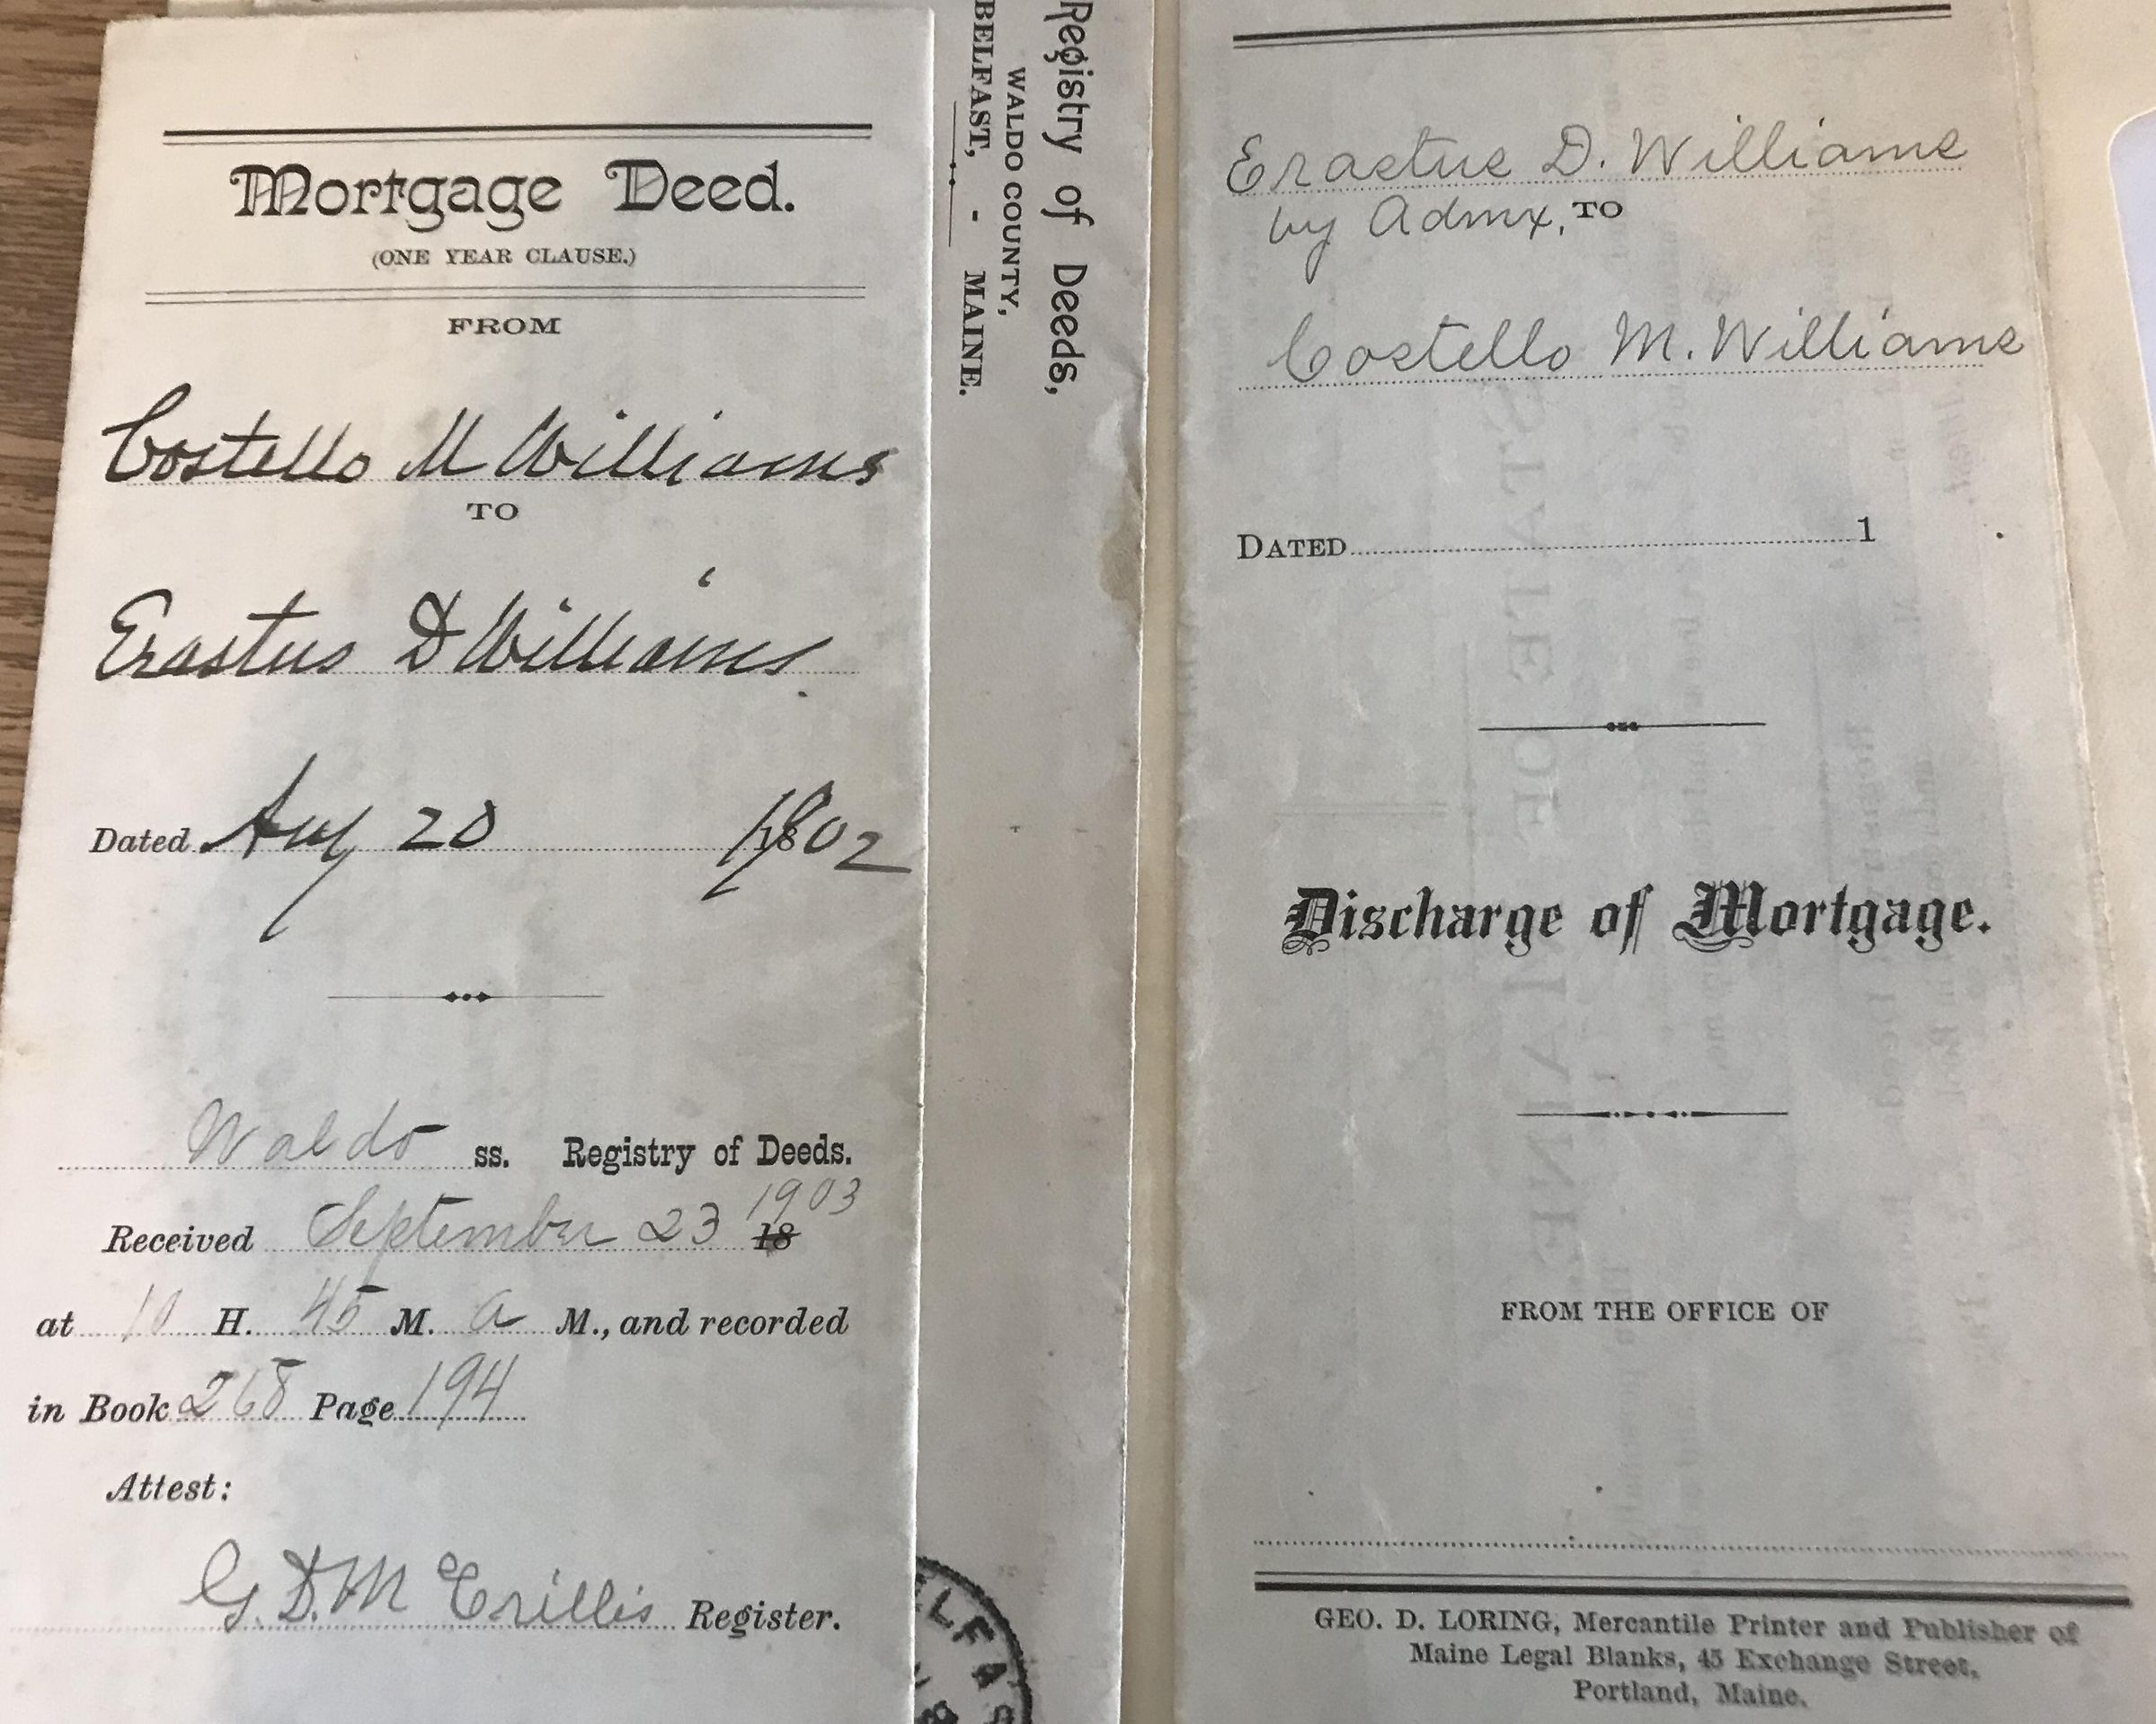 Mortgage Deed.
(ONE YEAR CLAUSE.)
FROM
Costello M Williams
TO
Erastus D Williams.
Dated Aug 20 1902
Waldo ss. Registry of Deeds.
1903
Received September 23 18
at 10 H. 45 M. a M., and recorded
in Book 268 Page 194
Attest:
G. D. McCrillis Register.
Registry of Deeds,
WALDO COUNTY,
BELFAST, - MAINE.
ELFAS
Erastus D. Williams
by Admx, TO
Costello M. Williams
DATED 1
STATE OF MAINE
Discharge of Mortgage.
FROM THE OFFICE OF
GEO. D. LORING, Mercantile Printer and Publisher of
Maine Legal Blanks, 45 Exchange Street,
Portland, Maine.